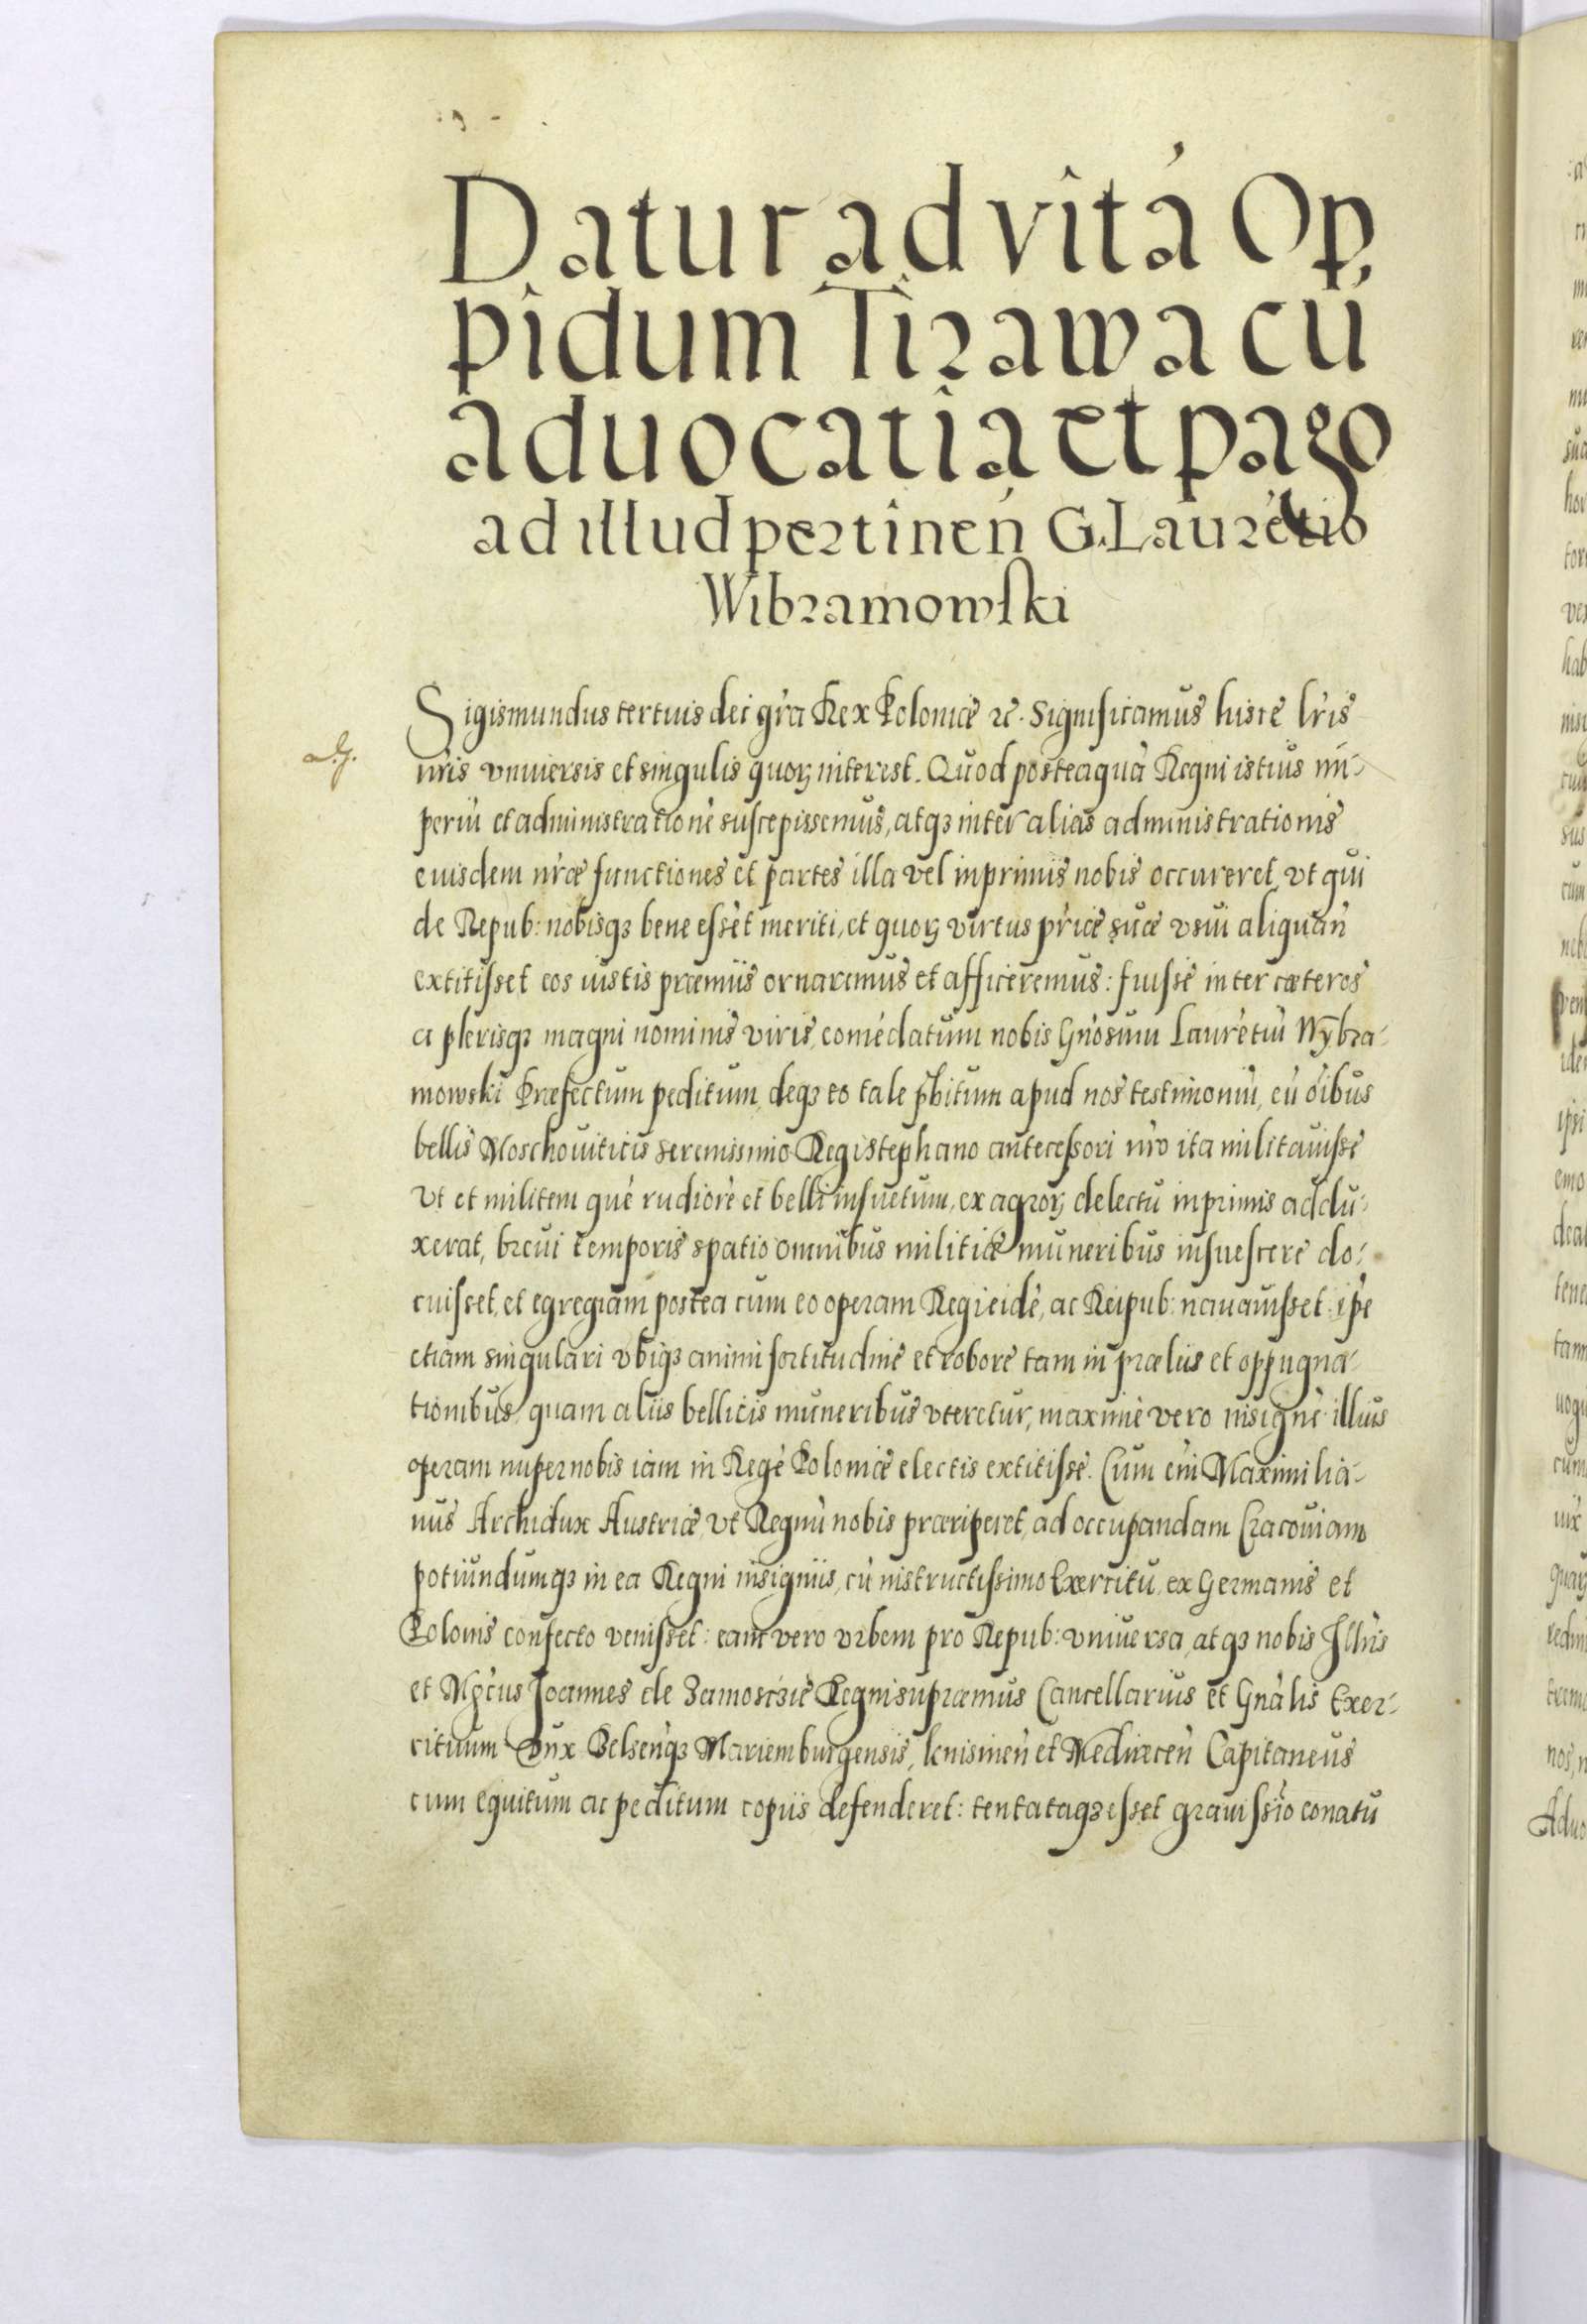 Datur ad vitá Op
pidum Tirawa cú
aduocatia et pago
ad illud pertineń G. Lauretio
Wibramowski
Sigismundus tertius dei gra Rex Poloniæ zc. Significamus hisce lris
nris vniuersis et singulis quoꝝ interest. Quod posteaquà Regni istius im-
periù et administrationè suscepissemus, atqꝫ inter alias administrationis
eiusdem nræ functiones et partes illa vel inprimis nobis occureret, vt qui
de Repub: nobisqꝫ bene essèt meriti, et quoꝝ virtus priæ suæ vsui aliquan
extitisset eos iustis præmiis ornaremus et afficeremus: fuisse inter cæteros
a plerisqꝫ magni nominis viris, comèdatum nobis Gnosum Laurètiù Wybra-
mowski Præfectum peditum, deqꝫ eo tale phbitum apud nos testimoniù, eù oibus
bellis Moschouiticis serenissimo Regi Stephano antecessori nro ita militauisse
vt et militem què rudiorè et belli insuetum, ex agroꝝ delectu inprimis addu-
xerat, breui temporis spatio omnibus militiæ muneribus insuescere do-
cuisset, et egregiam postea cum eo operam Regi eidè, ac Reipub: nauauisset: ipe
etiam singulari vbiqꝫ animi fortitudine et robore tam in præliis et oppugna-
tionibus, quam aliis bellicis muneribus vteretur, maximè vero insignè illius
operam nuper nobis iam in Regè Poloniæ electis extitisse. Cum eni Maximilia-
nus Archidux Austriæ, vt Regnù nobis præriperet, ad occupandam Cracouiam
potiundumqꝫ in ea Regni insigniis, cù instructissimo Exercitu, ex Germanis et
Polonis confecto venisset: eam vero vrbem pro Repub: vniuersa, atqꝫ nobis Illris
et Mgcus Joannes de Zamosczie Regni supræmus Cancellarius et Gnalis Exer-
cituum Dux Belsenqꝫ Mariemburgensis, Knisinen et Medirecen Capitaneus
cum equitum ac peditum copiis defenderet: tentataqꝫ esset grauissio conatu